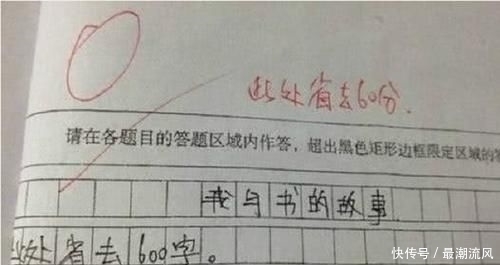 此处省去60分.
请在各题目的答题区域内作答，超出黑色矩形边框限定区域的答
我与书的故事
此处省去600字。
快传号/最潮流风